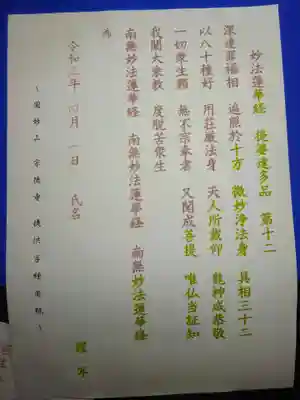 妙法蓮華経　提婆達多品　第十二
深達罪福相　遍照於十方　微妙浄法身　具相三十二
以八十種好　用荘厳法身　天人所戴仰　龍神咸恭敬
一切衆生類　無不宗奉者　又聞成菩提　唯仏当証知
我闡大乗教　度脱苦衆生
南無妙法蓮華経　南無妙法蓮華経　南無妙法蓮華経
為
令和三年　四月　一日　氏名